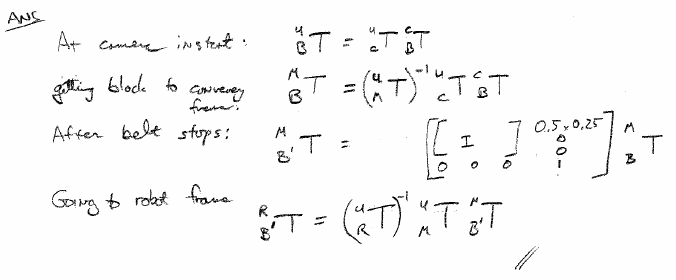 ANS
At camera instant: ᵁ_B T = ᵁ_C T ᶜ_B T
getting block to conveyer frame: ᴹ_B T = (ᵁ_M T)⁻¹ ᵁ_C T ᶜ_B T
After belt stops: ᴹ_B' T = [[I] 0.5 x 0.25 0 0; 0 0 0 1] ᴹ_B T
Going to robot frame ᴿ_B' T = (ᵁ_R T)⁻¹ ᵁ_M T ᴹ_B' T
//